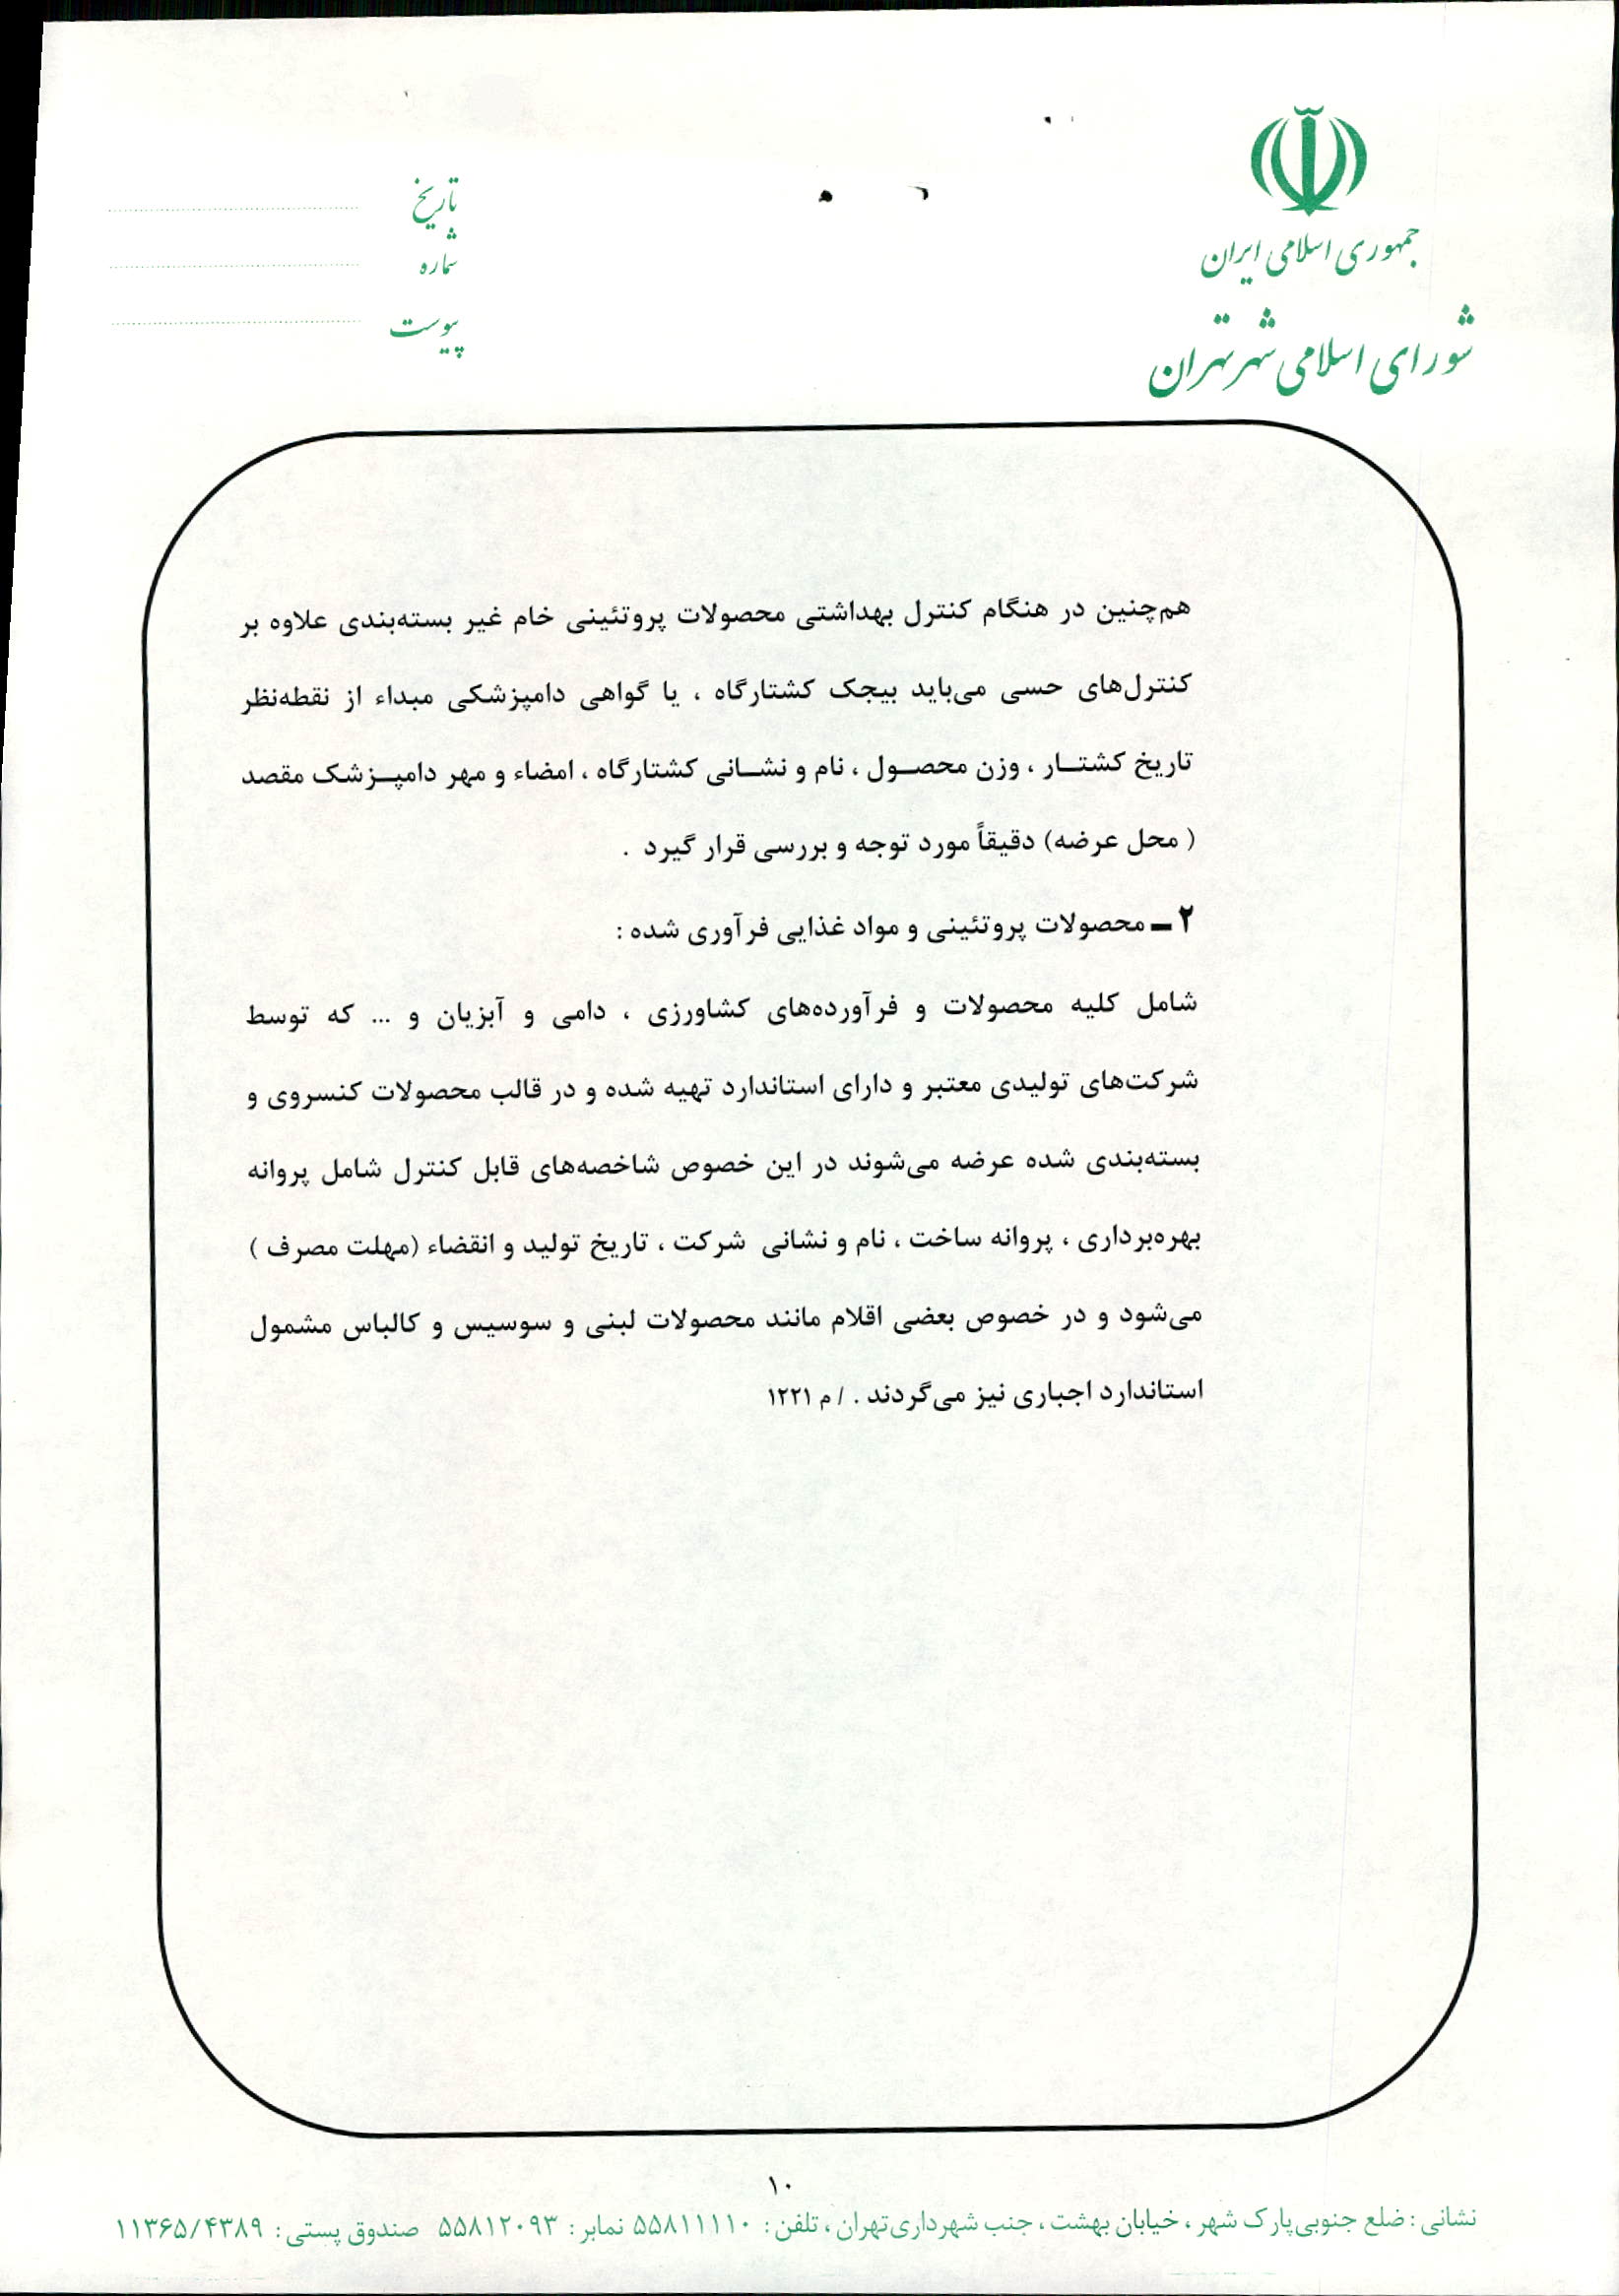 جمهوری اسلامی ایران
شورای اسلامی شهر تهران
تاریخ
شماره
پیوست
هم‌چنین در هنگام کنترل بهداشتی محصولات پروتئینی خام غیر بسته‌بندی علاوه بر
کنترل‌های حسی می‌باید بیجک کشتارگاه ، یا گواهی دامپزشکی مبداء از نقطه‌نظر
تاریخ کشتـــار ، وزن محصــول ، نام و نشــانی کشتارگاه ، امضاء و مهر دامپــزشک مقصد
( محل عرضه) دقیقاً مورد توجه و بررسی قرار گیرد .
۲ ـ محصولات پروتئینی و مواد غذایی فرآوری شده :
شامل کلیه محصولات و فرآورده‌های کشاورزی ، دامی و آبزیان و ... که توسط
شرکت‌های تولیدی معتبر و دارای استاندارد تهیه شده و در قالب محصولات کنسروی و
بسته‌بندی شده عرضه می‌شوند در این خصوص شاخصه‌های قابل کنترل شامل پروانه
بهره‌برداری ، پروانه ساخت ، نام و نشانی شرکت ، تاریخ تولید و انقضاء (مهلت مصرف )
می‌شود و در خصوص بعضی اقلام مانند محصولات لبنی و سوسیس و کالباس مشمول
استاندارد اجباری نیز می‌گردند . / م ۱۲۲۱
۱۰
نشانی : ضلع جنوبی پارک شهر ، خیابان بهشت ، جنب شهرداری تهران ، تلفن : ۵۵۸۱۱۱۱۰ نمابر : ۵۵۸۱۲۰۹۳ صندوق پستی : ۱۱۳۶۵/۴۳۸۹